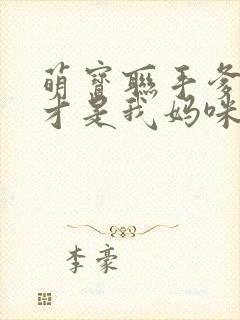 萌宝联手爹
才是我妈咪
李豪